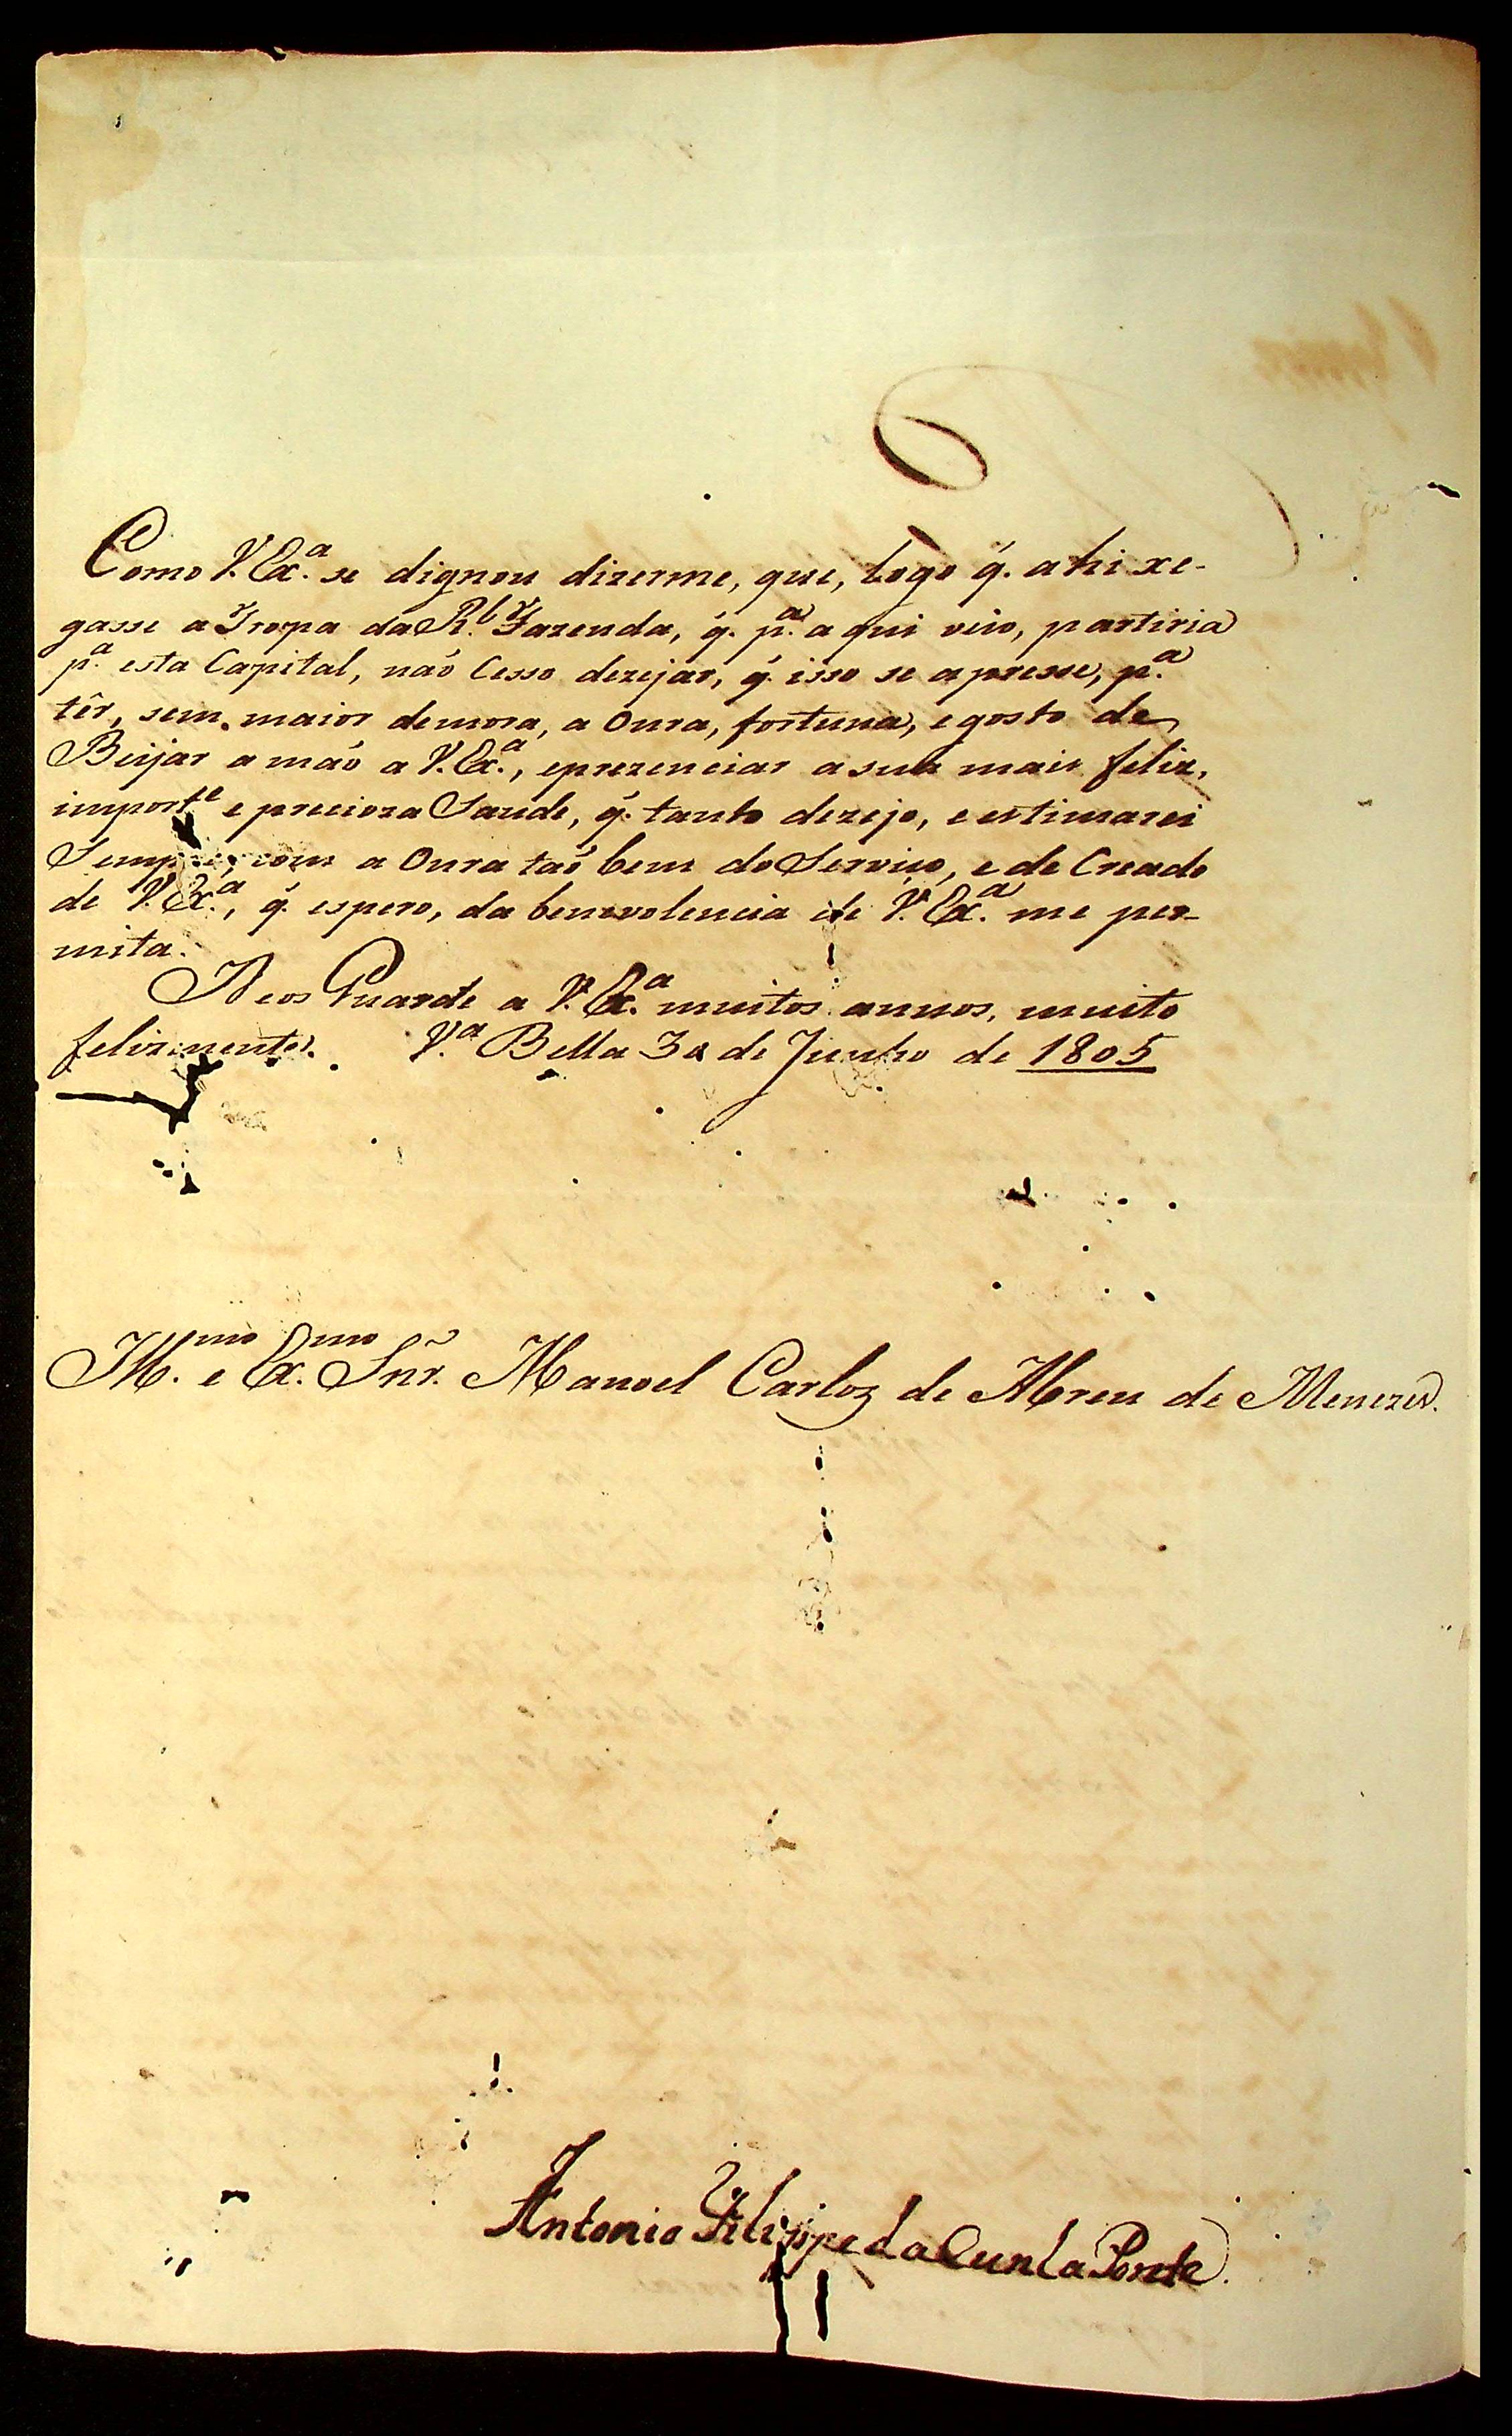 Como V. Ex.ª se dignou dizerme, que, logo q̃. ahi xe-
gasse a Tropa da R.l Fazenda, q̃. p.ª aqui veio, partiria
p.ª esta Capital, naõ Cesso dezejar, q̃. isso se apresse, p.ª
têr, sem maior demora, a Onra, fortuna, e gosto de
Beijar a maõ a V. Ex.ª, e prezenciar a sua mais feliz,
import.e e precioza Saude, q̃. tanto dezejo, e estimarei
Sempre, com a Onra taõ bem do Serviço, e de Creado
de V. Ex.ª, q̃. espero, da benevolencia de V. Ex.ª me per-
mita.
Deos Guarde a V. Ex.ª muitos annos, muito
felizmente. V.ª Bella 30 de Junho de 1805
Ill.mo e Ex.mo Snr̃. Manoel Carlos de Abreu de Menezes.
Antonio Filippe da Cunha Ponte